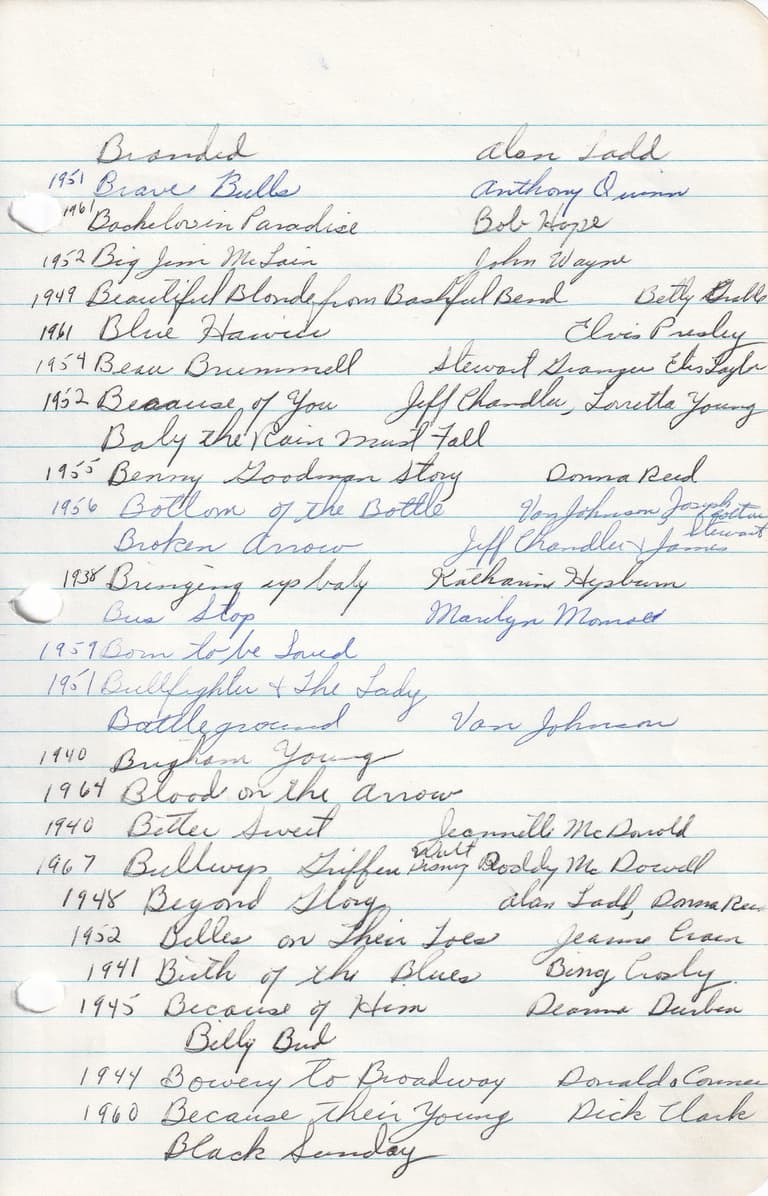 Branded Alan Ladd
1951 Brave Bulls Anthony Quinn
1961 Bachelor in Paradise Bob Hope
1952 Big Jim McLain John Wayne
1949 Beautiful Blonde from Bashful Bend Betty Grable
1961 Blue Hawii Elvis Presley
1954 Beau Brummell Stewart Granger Elis Taylor
1952 Because of You Jeff Chandler, Lorretta Young
Baby the Rain Must Fall
1955 Benny Goodman Story Donna Reed
1956 Bottom of the Bottle Van Johnson Joseph Cotten
Broken Arrow Jeff Chandler & James Stewart
1938 Bringing up baby Katharine Hepburn
Bus Stop Marilyn Monroe
1959 Born to be Loved
1951 Bullfighter & The Lady
Battleground Van Johnson
1940 Brigham Young
1964 Blood on the Arrow
1940 Bitter Sweet Jeannette McDonold
1967 Bullwyp Griffen Walt Disney Roddy Mc Dowell
1948 Beyond Glory Alan Ladd, Donna Reed
1952 Belles on Their Toes Jeanne Crain
1941 Birth of the Blues Bing Crosby
1945 Because of Him Deanna Durbin
Billy Bud
1944 Bowery to Broadway Donald o Conner
1960 Because their Young Dick Clark
Black Sunday